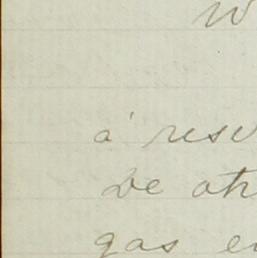 W
a resu
be oth
gas en